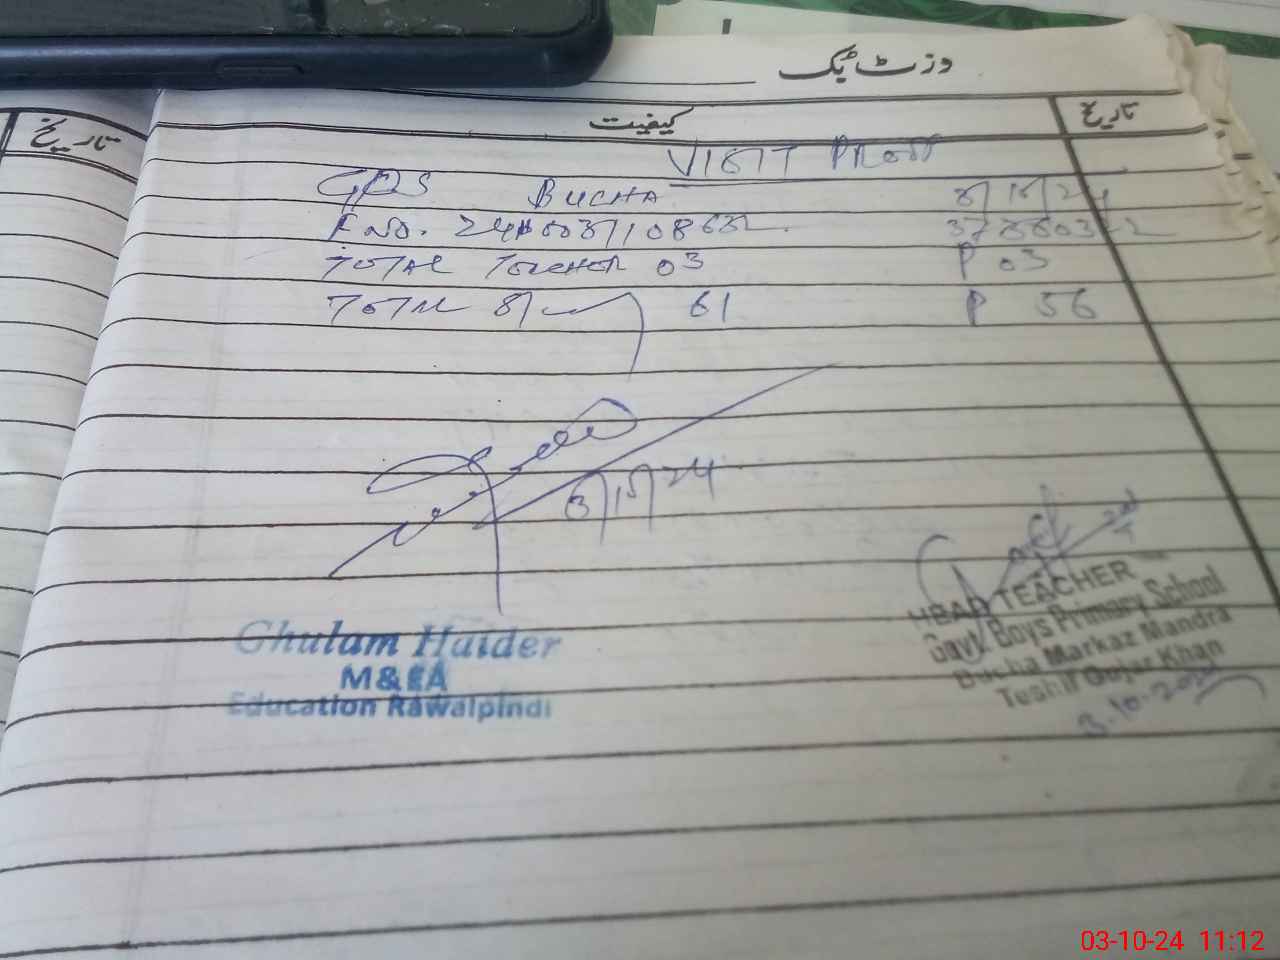 وزٹ بک
تاریخ
کیفیت
تاریخ
VISIT PROOF
GPS BUCHA 3/10/24
TOTAL TEACHER 03 P 03
TOTAL 61 P 56
3/10/24
Ghulam Haider
M&EA
Education Rawalpindi
HEAD TEACHER
Govt. Boys Primary School
Bucha Markaz Mandra
Tehsil Gujar Khan
3-10-2024
03-10-24 11:12